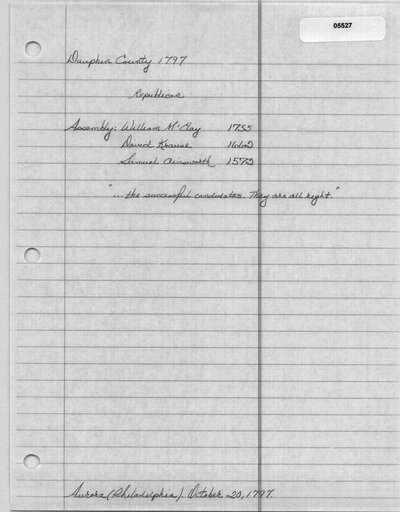 05527
Dauphin County 1797
Republican
Assembly: William M'Clay 1755
David Krause
Samuel Ainsworth
"... the successful candidates. They are all right."
Aurora (Philadelphia). October 20, 1797.